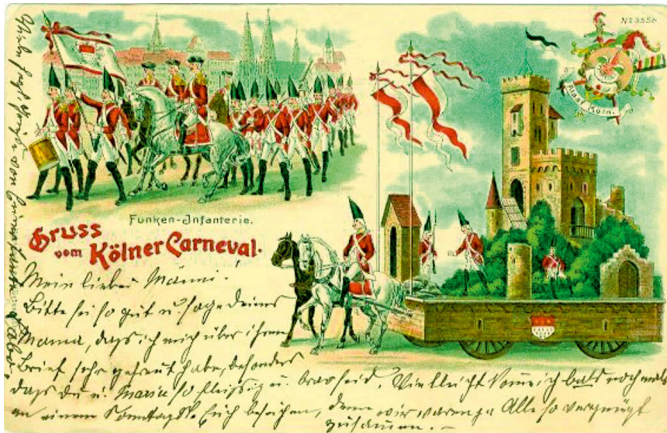 No 3558
Alaaf Köln.
Funken-Infanterie.
Gruss
vom Kölner Carneval.
Mein lieber Männi!
Bitte sei so gut u. sage deiner
Mama, dass ich mich über ihren
Brief sehr gefreut habe, besonders
dass du u. Maria so fleißig u. brav seid. Vielleicht komme ich bald noch mal
an einem Sonntag Euch besuchen, denn wir waren ja Alle so vergnügt
zusammen. –